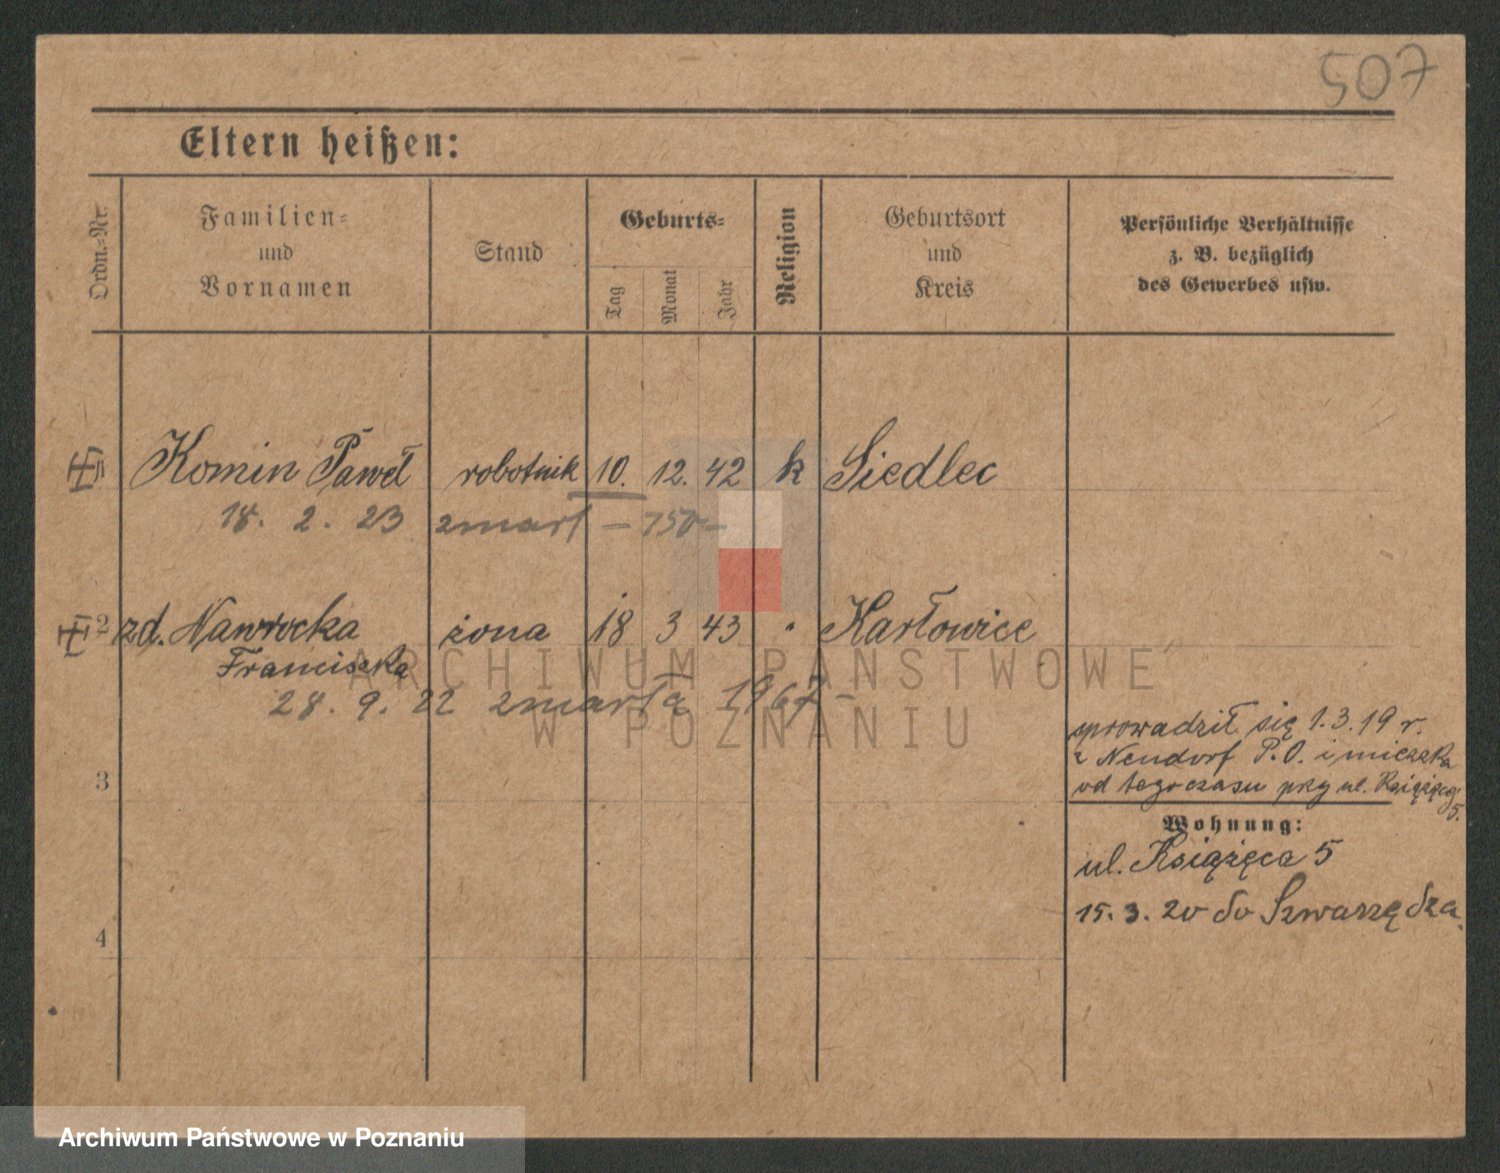 507
Eltern heißen:
Ordn.-Nr.
Familien-
und
Vornamen
Stand
Geburts-
Tag
Monat
Jahr
Religion
Geburtsort
und
Kreis
Persönliche Verhältnisse
z. B. bezüglich
des Gewerbes usw.
Komin Paweł robotnik 10. 12. 42 k Siedlec
18. 2. 23 zmarł — 750 —
2 zd. Nawrocka żona 18 3 43 " Karłowice
Franciszka
28. 9. 22 zmarła 1967 —
sprowadził się 1.3.19 r.
z Neudorf P.O. i mieszka
3
od tego czasu przy ul. Książęcej
5.
Wohnung:
ul. Książęca 5
15. 3. 20 do Szwarzędza
4
ARCHIWUM PAŃSTWOWE
W POZNANIU
Archiwum Państwowe w Poznaniu